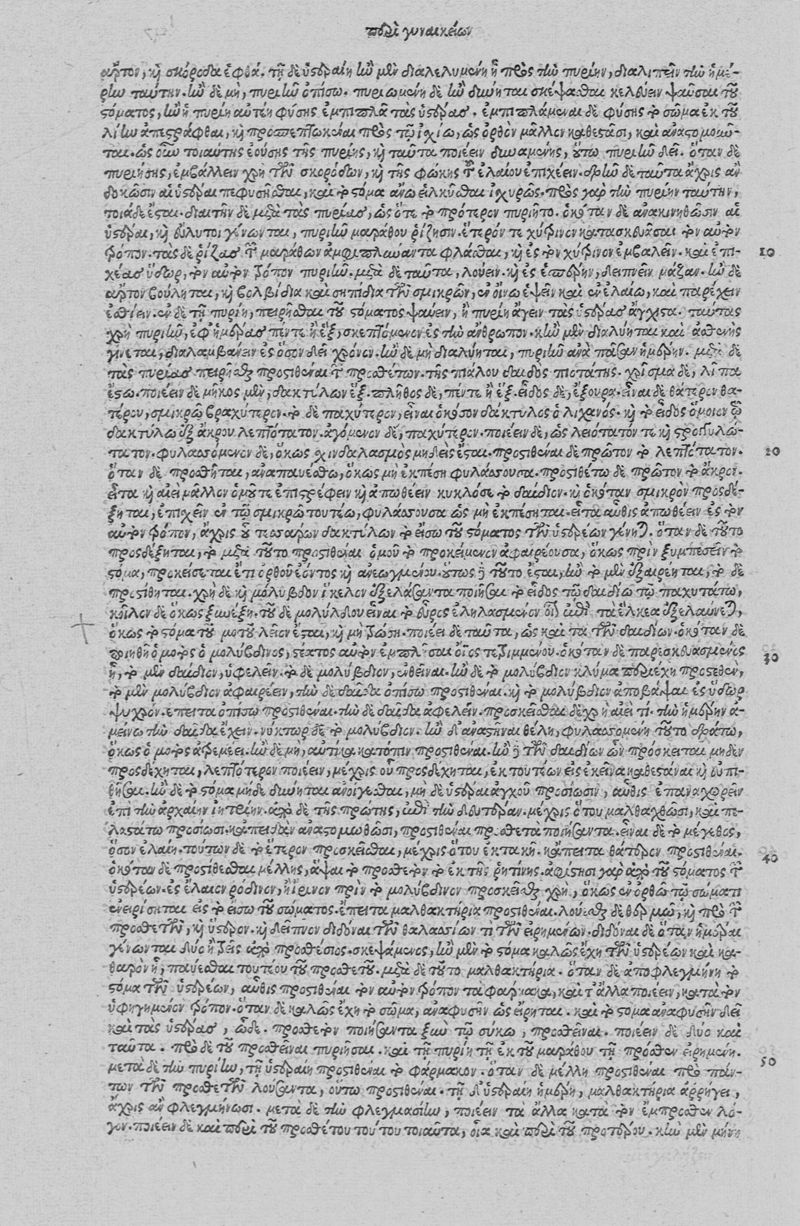 περὶ γυναικείων
ἄρτον, καὶ σκόροδα ἑφθά. τῇ δὲ ὑστεραίῃ ἢν μὲν διαλελυμένη ᾖ πρὸς τὴν πυρίην, διαλιπεῖν τὴν ἡμέ-
ρην ταύτην. ἢν δὲ μὴ, πυριῆν ὀπίσω. πυριωμένη δὲ ἢν δύνηται σκέψασθαι κελεύειν ψαῦσαι τοῦ
στόματος, ἢν ἡ πυρίη αὐτέη φύσης ἐμπιπλᾷ τὰς ὑστέρας.
λίην ἀπεστράφθαι, καὶ προσπεπτωκέναι πρὸς τῷ ἰσχίῳ, ὡς ὀρθὸν μᾶλλον καθεστάσι, καὶ ἀναστομοῦν-
ται. ὡς οὖν τοιαύτης ἐούσης τῆς πυρίης, καὶ ταῦτα ποιέειν δυναμένης, οὕτω πυριῆν δεῖ. ὅταν δὲ
πυριήσῃς, ἐμβάλλειν χρὴ τῶν σκορόδων, καὶ τῆς φώκης τοῦ ἐλαίου ἐπιχέειν. δρᾶν δὲ ταῦτα ἄχρις ἂν
δοκῶσιν αἱ ὑστέραι πεφυσῆσθαι, καὶ τὸ στόμα ἄνω εἱλκύσθαι ἰσχυρῶς. πρὸς γὰρ τὴν πυρίην ταύτην,
τοιάδε ἔσται. διαιτῆν δὲ μετὰ τὰς πυρίας, ὡς ὅτε τὸ πρότερον πυριῆτο. ὁκόταν δὲ ἀνακινηθῶσιν αἱ
ὑστέραι, καὶ εὔλυτοι γένωνται, πυριῆν μαράθου ῥίζησιν. ἕτερόν τε χύτρινον κατασκευάσαι τὸν αὐτὸν
τρόπον. τὰς δὲ ῥίζας τῶν μαράθων ἀμφιπλύναντα φλάσθαι, καὶ ἐς τὸν χύτρινον ἐμβαλεῖν. καὶ ἐπι-
χέας ὕδωρ, τὸν αὐτὸν τρόπον πυριῆν. μετὰ δὲ ταῦτα, λούειν. καὶ ἐς ἑσπέρην, δειπνεῖν μάζαν. ἢν δὲ
ἄρτον βούληται, καὶ βολβίδια καὶ σηπίδια τῶν σμικρῶν, ἐν οἴνῳ ἕψειν καὶ ἐν ἐλαίῳ, καὶ παρέχειν
ἐσθίειν. ἐν δὲ τῇ πυρίῃ, πειρῆσθαι τοῦ στόματος ψαύειν, ἢ πυρίη ἄγειν τὰς ὑστέρας ἄγχιστα. ταύτας
χρὴ πυριῆν, ἐφ᾽ ἡμέρας πέντε ἢ ἓξ, σκεπτόμενον ἐς τὴν ἄνθρωπον. κἢν μὲν διαλύηται καὶ ἀσθενὴς
γίνεται, διαλαμβάνειν ἐς ὅσον δεῖ χρόνον. ἢν δὲ μὴ διαλύηται, πυριῆν ἀνὰ πᾶσαν ἡμέρην. μετὰ δὲ
τὰς πυρίας πειρῆσθαι προστιθέναι τῶν προσθέτων. τῆς πάλου δαιδὸς πιοτάτης. χρίσμα δὲ, λίπα
ἔστω. ποιέειν δὲ μῆκος μὲν, δακτύλων ἕξ. πλῆθος δὲ, πέντε ἢ ἕξ. εἶδος δὲ, ἔξουρα. εἶναι δὲ θάτερον θα-
τέρου, σμικρῷ βραχύτερον. τὸ δὲ παχύτερον, εἶναι ὁκόσον δάκτυλος ὁ λιχανός. καὶ τὸ εἶδος ὅμοιον τῷ
δακτύλῳ ἐξ ἄκρου λεπτότατον. ἀγόμενον δὲ, παχύτερον. ποιέειν δὲ, ὡς λειότατόν τε καὶ στρογγυλώ-
τατον. φυλασσόμενον δὲ, ὅκως σχινδαλασμὸς μηδεὶς ἔσται. προστιθέναι δὲ πρῶτον τὸ λεπτότατον.
ὅταν δὲ προσθῆται, ἀναπαυέσθω, ὅκως μὴ ἐκπέσῃ φυλάσσουσα. προστιθέτω δὲ πρῶτον τὸ ἄκρον.
εἶτα καὶ αἰεὶ μᾶλλον ὁμοῦ τε ἐπιστρέφειν καὶ ἀπωθέειν κυκλόσε τὸ δαίδιον. καὶ ὁκόταν σμικρὸν προσδέ-
ξηται, ἐπισχεῖν ἐν τῷ σμικρῷ τουτέῳ, φυλάσσουσα ὡς μὴ ἐκπέσηται. εἶτα αὖθις ἀπωθέειν ἐς τὸν
αὐτὸν τρόπον, ἄχρις οὗ τεσσάρων δακτύλων τὸ εἴσω τοῦ στόματος τῶν ὑστερέων γένηται. ὅταν δὲ τοῦτο
προσδέξηται, τὸ μετὰ τοῦτο προστιθέναι ὁμοῦ τὸ προκείμενον ἀφαιρέουσα, ὅκως πρὶν ξυμπεσεῖν τὸ
στόμα, προσκείσεται ἔτι ὀρθοῦ ἐόντος καὶ ἀνεῳγμένου. οὕτως δὲ τοῦτο ἔσται, ἢν τὸ μὲν ἐξαιρέηται, τὸ δὲ
προστιθῆται. χρὴ δὲ καὶ μόλυβδον ἴκελον ἐξελάσαντα ποιῆσαι τὸ εἶδος τῷ δαιδίῳ τῷ παχυτάτῳ,
ὅκως τὸ στόμα τοῦ μοτοῦ λεῖον ἔσται, καὶ μὴ τρώσῃ. ποιέει δὲ ταῦτα, ὡς καὶ τὰ τῶν δαιδίων. ὁκόταν δὲ
ποιηθῇ ὁ μοτὸς ὁ μολύβδινος, στέατος αὐτὸν ἐμπλῆσαι οἰὸς τετριμμένου. ὁκόταν δὲ παρεσκευασμένος
ᾖ, τὸ μὲν δαίδιον, ὑφελεῖν. τὸ δὲ μολύβδιον, ἐνθεῖναι. ἢν δὲ τὸ μολύβδιον καῦμα παρέχῃ προστεθὲν,
τὸ μὲν μολύβδιον ἀφαιρέειν, τὴν δὲ δαῖδα ὀπίσω προστιθέναι. καὶ τὸ μολύβδιον ἀποβάψαι ἐς ὕδωρ
ψυχρόν. ἔπειτα ὀπίσω προστιθέναι. τὴν δὲ δαῖδα ἀφελεῖν. προσκεῖσθαι δὲ χρὴ αἰεί τι. τὴν ἡμέρην ἄ-
μεινον τὴν δαῖδα ἔχειν. νύκτωρ δὲ τὸ μολύβδιον. ἢν δ᾽ ἀναστῆναι θέλῃ, φυλασσομένη τοῦτο δράτω,
ὅκως ὁ μοτὸς ἀτρεμέει. ἢν δὲ μὴ, αὐτίκα κατόπιν προστιθέναι. ἢν δὲ τῶν δαιδίων ὧν πρόσκειται μηδὲν
προσδέχηται, λεπτότερον ποιέειν, μέχρις οὗ προσδέχηται, ἐκ τουτέων εἰς ἐκεῖνα καθεστάναι καὶ
ἢν δὲ τὸ στόμα μηδὲ δύνηται ἀνοίγεσθαι, μὴ δὲ ὑστέραι ἀγχοῦ προσίωσιν, αὖθις ἐπαναχωρεῖν
ἐπὶ τὴν ἀρχαίην ἰητρείην. ἀπὸ δὲ τῆς πρώτης, ἐπὶ τὴν δευτέραν. μέχρις ὅτου μαλθαχθῶσι, καὶ πε-
λαστάτω προσίωσι. κἄπειτ᾽ ἂν ἀναστομωθῶσι, προστιθέναι πρόσθετα ποιήσαντα. εἶναι δὲ τὸ μέγεθος,
ὅσον ἐλαίη. τούτων δὲ τὸ ἕτερον προσκεῖσθαι, μέχρις ὅτου ἐκτακῇ. κἄπειτα θάτερον προστιθέναι.
ὁκόταν δὲ προστίθεσθαι μέλλῃς, ἅψαι τὸ πρόσθετον τὸ ἐκ τῆς ῥητίνης. ἀφίστησι γὰρ ἀπὸ τοῦ στόματος τῶν
ὑστερέων. ἐς ἔλαιον ῥόδινον, ἢ ἴρινον πρὶν τὸ μολύβδινον προσκεῖσθαι χρὴ, ὅκως ἐν ὀρθῷ τῷ σώματι
ἐνειρίσεται εἰς τὸ εἴσω τοῦ σώματος. ἔπειτα μαλθακτήρια προστιθέναι. λούεσθαι δὲ θερμῷ, καὶ πρὸ τῶν
προσθετῶν, καὶ ὕστερον. καὶ δεῖπνον διδόναι τῶν θαλασσίων τι τῶν εἰρημένων. διδόναι δὲ ὅταν ἡμέραι
γένωνται δύο ἢ τρεῖς ἀπὸ προσθέσιος. σκεψάμενος, ἢν μὲν τὸ στόμα καλῶς ἔχῃ τῶν ὑστερέων καὶ κα-
θαρὸν ᾖ, παύεσθαι τουτέου τοῦ προσθετοῦ. μετὰ δὲ τοῦτο μαλθακτήρια. ὅταν δὲ ἀποφλεγμήνῃ τὸ
στόμα τῶν ὑστερέων, αὖθις προστιθέναι τὸν αὐτὸν τρόπον τὰ φάρμακα, καὶ τἄλλα ποιέειν, κατὰ τὸν
ὑφηγημένον τρόπον. ὅταν δὲ καλῶς ἔχῃ τὸ σῶμα, ἀναφυσῆν ὡς εἴρηται. καὶ τὸ στόμα ἀναφυσῆν δεῖ
καὶ τὰς ὑστέρας, ὧδε. πρόσθετον ποιήσαντα ξὺν τῷ σύκῳ, προσθεῖναι. ποιέειν δὲ δύο καὶ
ταῦτα. πρὸ δὲ τοῦ προσθεῖναι πυριῆσαι. καὶ τῇ πυρίῃ τῇ ἐκ τοῦ μαράθου τῇ πρόσθεν εἰρημένῃ.
μετὰ δὲ τὴν πυρίην, τῇ ὑστεραίῃ προστιθέναι τὸ φάρμακον. ὅταν δὲ μέλλῃ προστιθέναι πρὸ πάν-
των τῶν προσθετῶν λούσαντα, οὕτω προστιθέναι. τῇ δ᾽ ὑστεραίῃ ἡμέρῃ, μαλθακτήρια ἀρρήγει,
ἄχρις ἂν φλεγμήνωσι. μετὰ δὲ τὴν φλεγμασίην, ποιέειν τὰ ἄλλα κατὰ τὸν ἔμπροσθεν λό-
γον. ποιέειν δὲ καὶ περὶ τοῦ προσθέτου τούτου τοιαῦτα, οἷα καὶ περὶ τοῦ προτέρου. κἢν μὲν μήνη
10
20
30
40
50